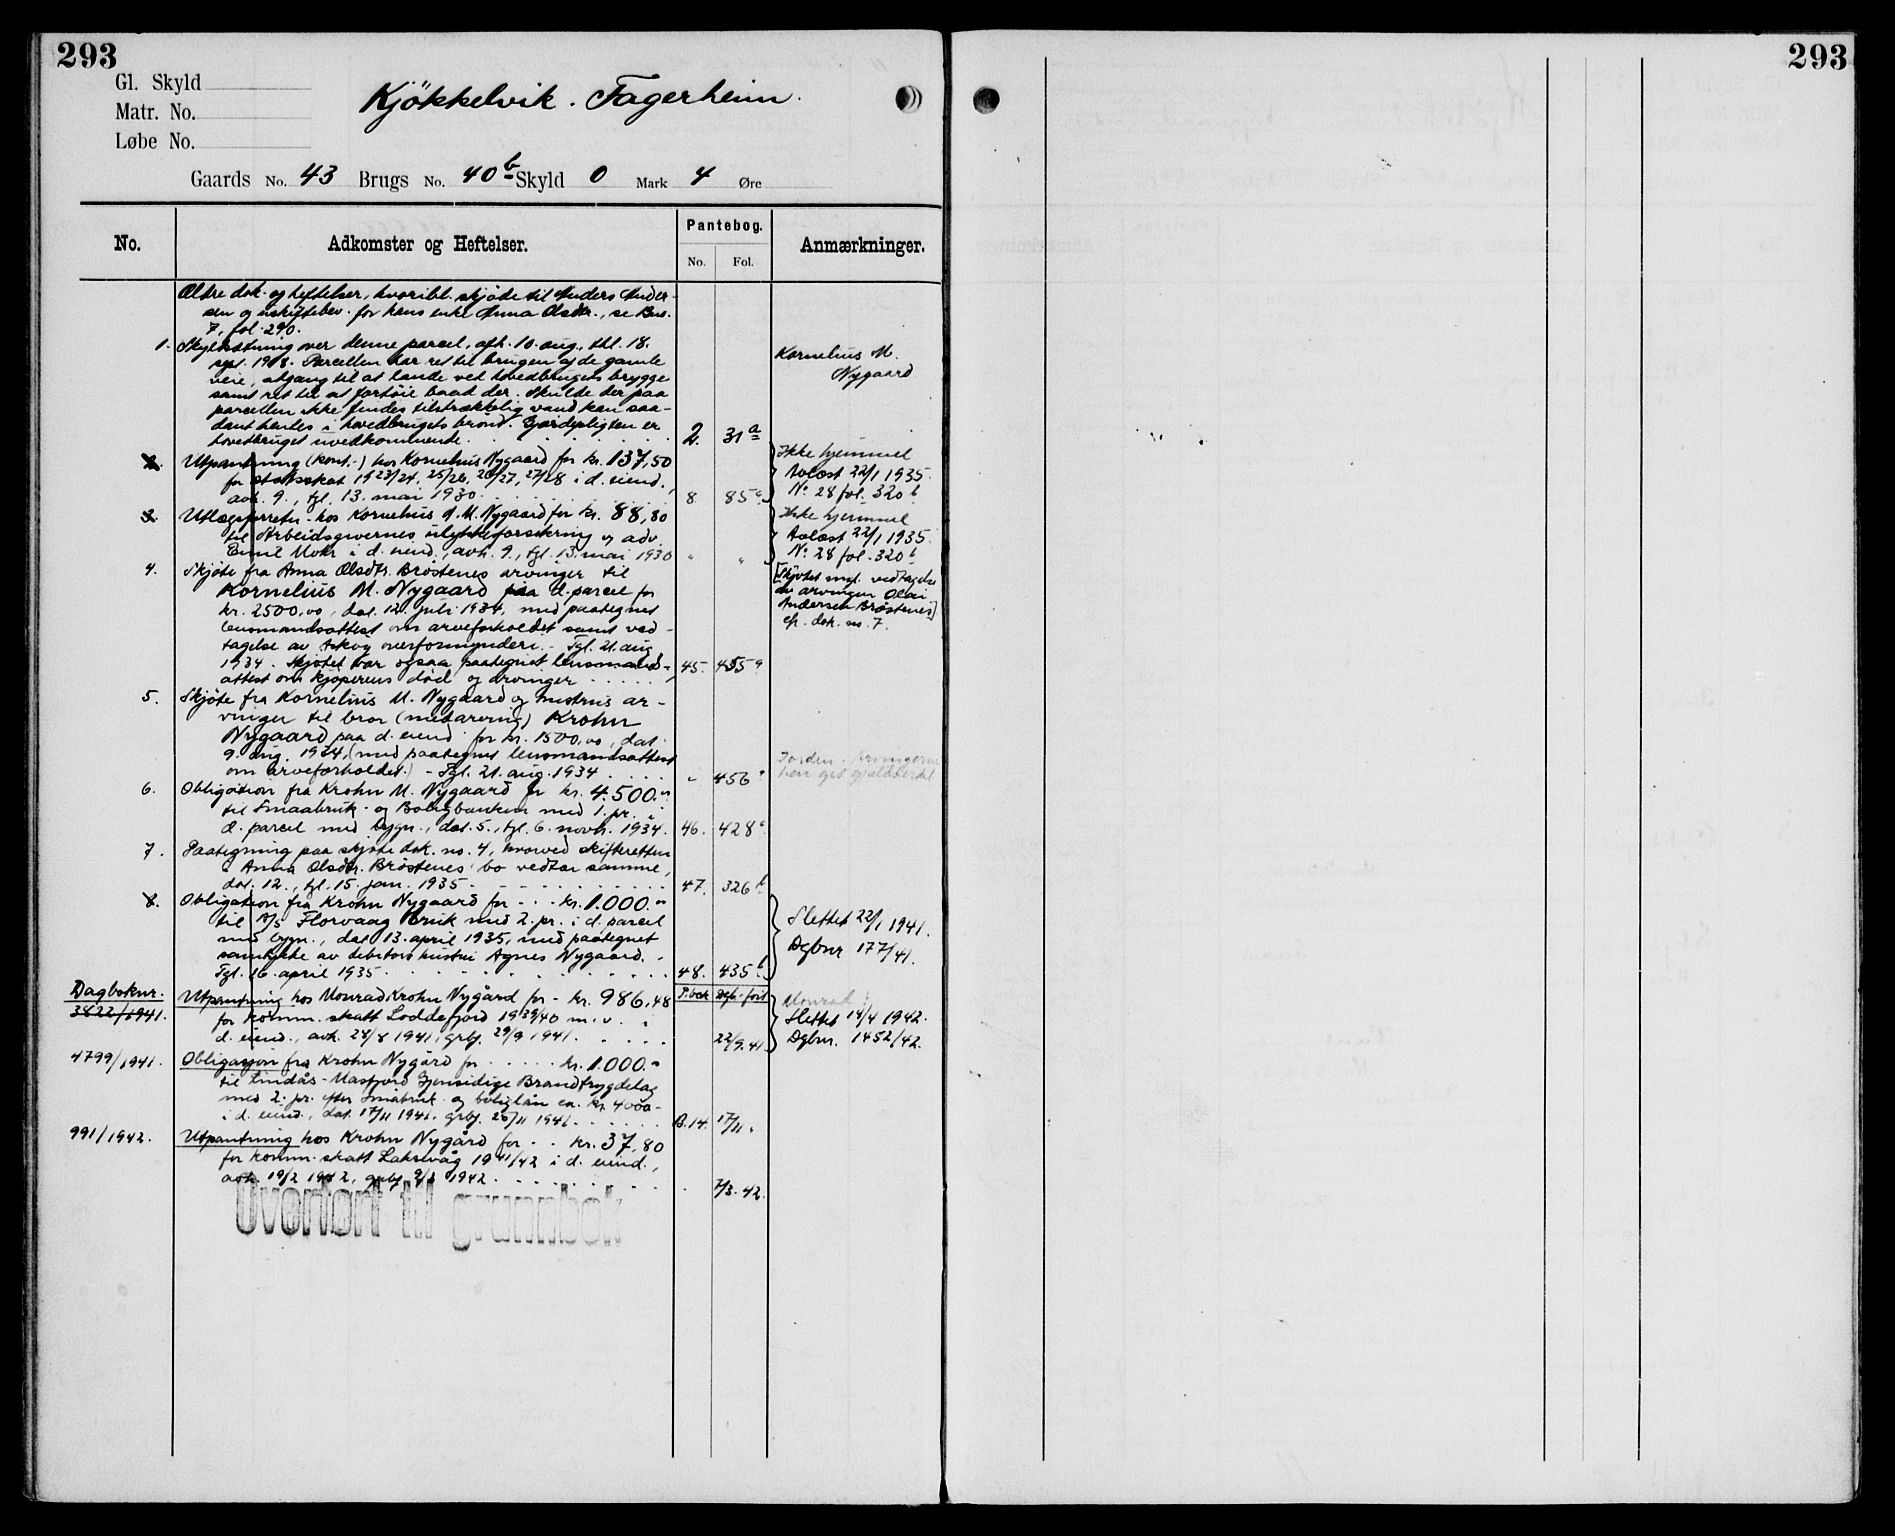 293
293
Gl. Skyld
Matr. No.
Løbe No.
Kjökkelvik. Fagerheim.
Gaards No. 43 Brugs No. 40 b Skyld 0 Mark 4 Øre
No.
Adkomster og Heftelser.
Pantebog.
No. Fol.
Anmærkninger.
Ældre dok. og heftelser, hvoribl. skjöte til Anders Ander-
sen og uskiftebev. for hans enke Anna Olsdtr., se Bno.
7, fol. 290.
1. Skyldsætning over denne parcel, afh. 10. aug., tgl. 18.
sept. 1918. Parcellen har ret til brugen af de gamle
veie, adgang til at lande ved hovedbrugets brygge
samt ret til at fortöie baad der. Skulde der paa
parcellen ikke findes tilstrækkelig vand kan saa-
dant hentes i hovedbrugets brönd. Gjerdepligten er
hovedbruget uvedkommende. 2. 31 a
Kornelius M.
Nygaard
2. Utpantning (kont.-) hos Kornelius Nygaard for kr. 137,50
for statsskat 1923/24, 25/26, 26/27, 27/28 i d. eiend.,
avh. 9., tgl. 13. mai 1930. 8. 85 a
Ikke hjemmel
Avlæst 22/1 1935.
No 28 fol. 320 b
3. Utlægsforretn. hos Kornelius A. M. Nygaard for kr. 88,80
til Arbeidsgivernes ulykkeforsikring og adv.
Emil Mohr i d. eiend., avh. 9., tgl. 13. mai 1930 " "
Ikke hjemmel
Avlæst 22/1 1935.
No 28 fol. 320 b
4. Skjöte fra Anna Olsdtr. Bröstenes arvinger til
Kornelius M. Nygaard paa d. parcel for
kr. 2500,00, dat. 12. juli 1934, med paategnet
lensmandsattest om arveforholdet samt ved-
tagelse av Askøy overformynderi. - Tgl. 21. aug.
1934. Skjötet har ogsaa paategnet lensmands-
attest om kjöperens död og arvinger 45. 455 a
[Skjötet mgl. vedtagelse
av arvingen Olai
Andersen Bröstenes]
cfr. dok. no. 7.
5. Skjöte fra Kornelius M. Nygaard og hustrus ar-
vinger til bror (medarving) Krohn
Nygaard paa d. eiend. for kr. 1500,00, dat.
9. aug. 1934, (med paategnet lensmandsattest
om arveforholdet.) - Tgl. 21. aug. 1934 " 456 a
6. Obligation fra Krohn M. Nygaard for kr. 4.500.00
til Smaabruk- og Boligbanken med 1. pr. i
d. parcel med bygn., dat. 5., tgl. 6. novbr. 1934. 46. 428 a
7. Paategning paa skjöte dok. no. 4, hvorved skifteretten
i Anna Olsdtr. Bröstenes' bo vedtar samme,
dat. 12., tgl. 15. jan. 1935 47. 326 b
8. Obligation fra Krohn Nygaard for kr. 1.000.00
til A/S Florvaag Bruk med 2. pr. i d. parcel
med bygn., dat. 13. april 1935, med paategnet
samtykke av debitors hustru Agnes Nygaard.
Tgl. 16. april 1935 48. 435 b
Slettet 22/1 1941.
Dgbnr 177/41.
Dagboknr.
3822/1941. Utpantning hos Monrad Krohn Nygård for kr. 986,48
for komm. skatt Loddefjord 1939/40 m.v. i
d. eiend., avh. 28/8 1941, grbf. 29/9 1941.
P.bok Dgb.-ført
22/9.41.
Monrad
Slettet 14/4 1942.
Dgbnr. 1452/42.
4799/1941. Obligasjon fra Krohn Nygård for kr. 1.000.00
til Lindås-Masfjord Gjensidige Brandtrygdelag
med 2. pr. efter Småbruk- og boliglån ca. kr. 4000-
i d. eiend., dat. 17/11 1941. grbf. 26/11 1941. B.14. 17/11.
991/1942. Utpantning hos Krohn Nygård for kr. 37,80
for komm. skatt Laksevåg 1941/42 i d. eiend.,
avh. 19/2 1942, grbf. 9/3 1942. 7/3.42.
Overført til grunnbok